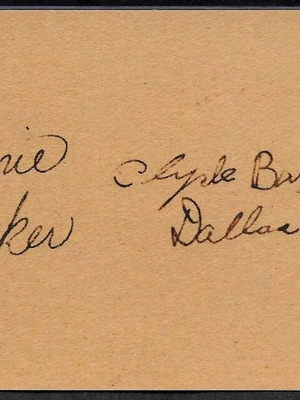 nie
ker
Clyde Bar
Dallas